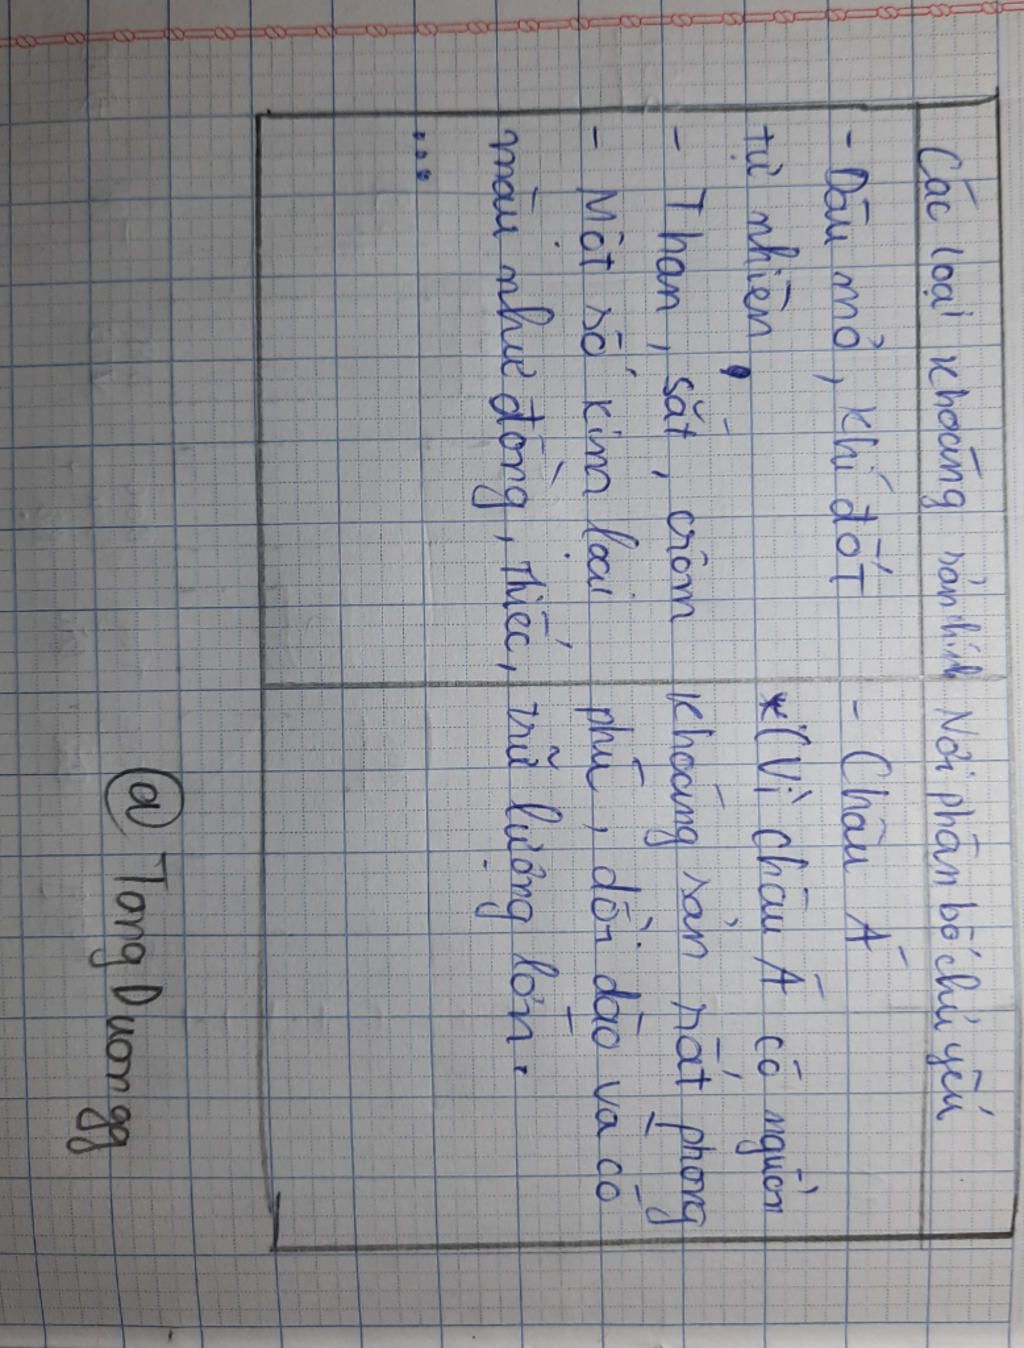 Các loại khoáng sản chính
Nơi phân bố chủ yếu
- Dầu mỏ, khí đốt
tự nhiên
- Than, sắt, crôm
- Một số kim loại
màu như đồng, thiếc,
...
- Châu Á
*(Vì châu Á có nguồn
khoáng sản rất phong
phú, dồi dào và có
trữ lượng lớn.
@ Tong Duongg